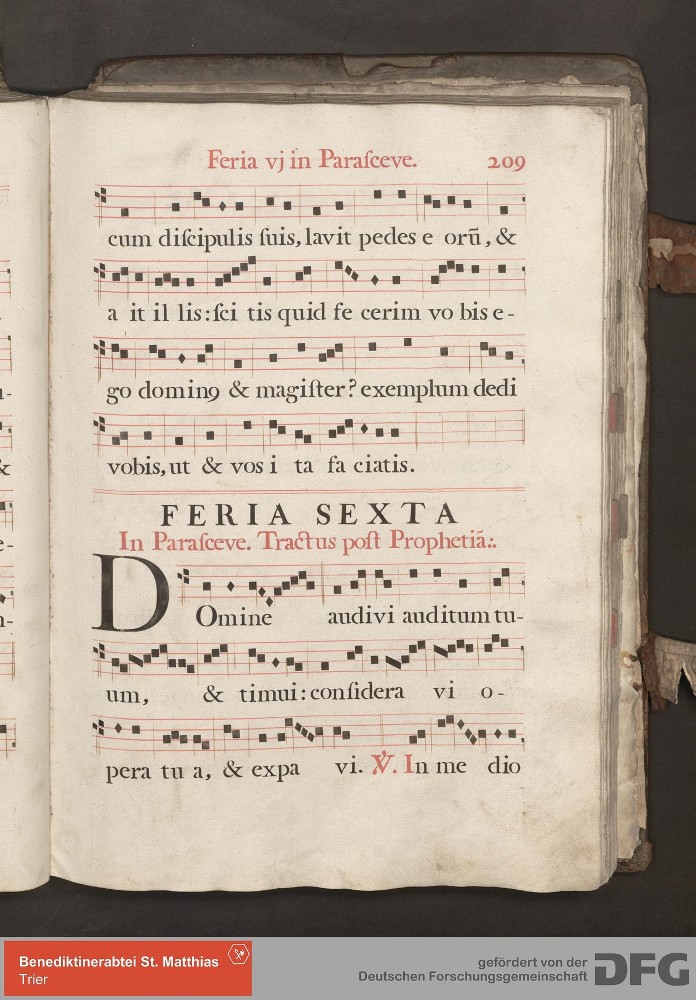 Feria vj in Paraſceve. 209
cum diſcipulis ſuis, lavit pedes e orū, &
a it il lis: ſci tis quid fe cerim vo bis e-
go dominꝯ & magiſter? exemplum dedi
vobis, ut & vos i ta fa ciatis.
FERIA SEXTA
In Paraſceve. Tractus poſt Prophetiā:.
DOmine audivi auditum tu-
um, & timui: conſidera vi o-
pera tu a, & expa vi. ℣. In me dio
Benediktinerabtei St. Matthias
Trier
gefördert von der
Deutschen Forschungsgemeinschaft
DFG